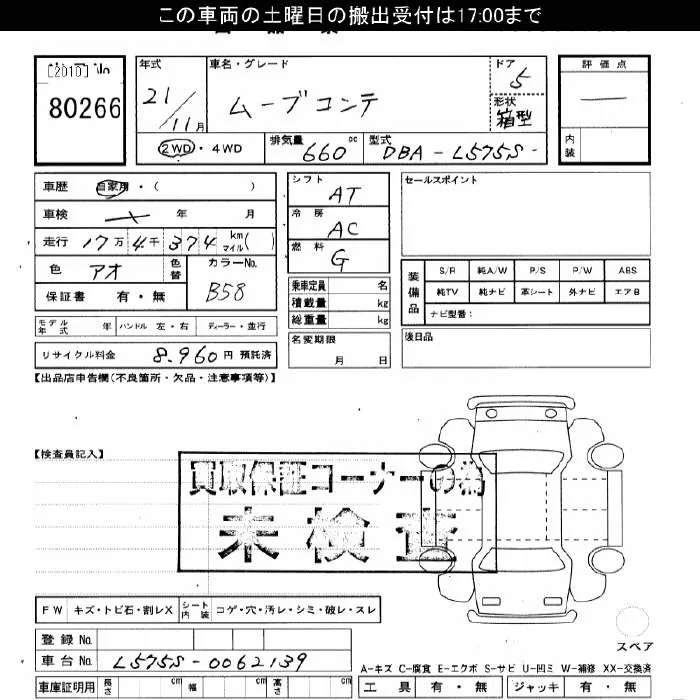 この車両の土曜日の搬出受付は17:00まで
[2010]
80266
年式
21/11月
車名・グレード
ムーブコンテ
ドア
5
形状
箱型
評価点
—
内装
2WD・4WD
排気量
660 cc
型式
DBA-L575S-
車歴 自家用・( )
車検 年 月
走行 17万 4千 374 km マイル( )
色 アオ 色替
カラーNo.
B58
保証書 有・無
シフト
AT
冷房
AC
燃料
G
乗車定員 名
積載量 kg
総重量 kg
セールスポイント
装備品
S/R 純A/W P/S P/W ABS
純TV 純ナビ 革シート 外ナビ エアB
ナビ型番:
モデル年式 年 ハンドル 左・右 ディーラー・並行
名変期限
月 日
後日品
リサイクル料金 8,960円 預託済
【出品店申告欄(不良箇所・欠品・注意事項等)】
【検査員記入】
買取保証コーナーの為
未検査
FW キズ・トビ石・割レX シート内装 コゲ・穴・汚レ・シミ・破レ・スレ
スペア
登録No.
車台No. L575S-0062139
A-キズ C-腐食 E-エクボ S-サビ U-凹ミ W-補修 XX-交換済
車庫証明用 長さ cm 幅 cm 高さ cm
工具 有・無 ジャッキ 有・無